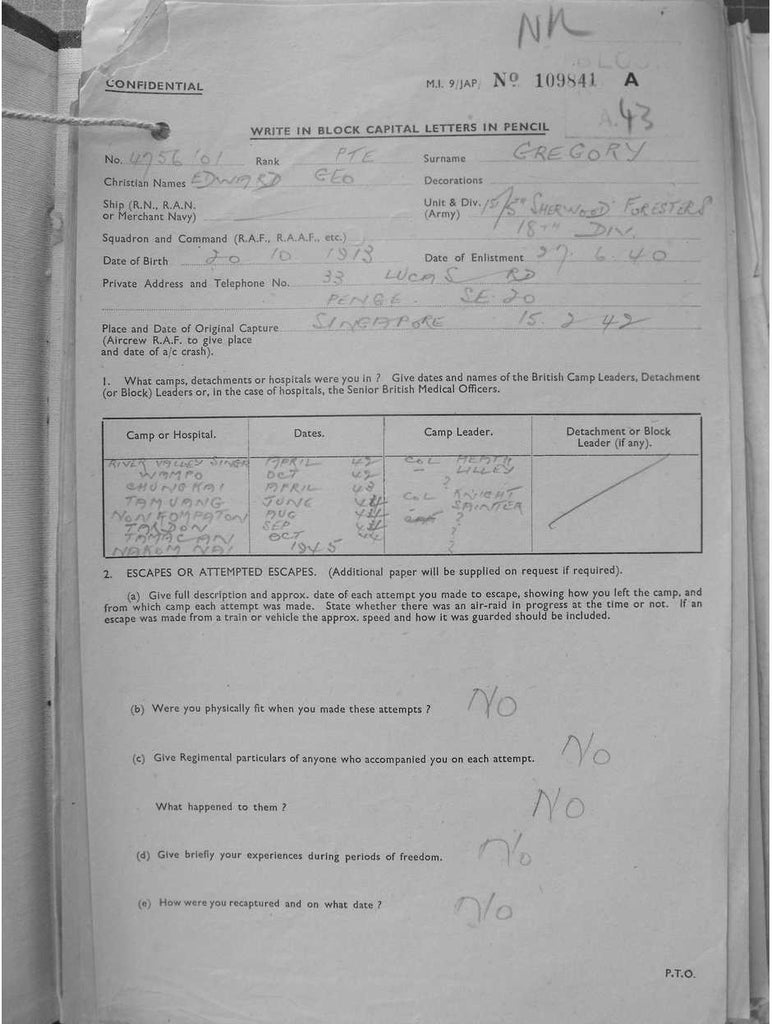 NR
CONFIDENTIAL
M.I. 9/JAP/ No 109841 A
A.43
WRITE IN BLOCK CAPITAL LETTERS IN PENCIL
No. 4756101 Rank PTE Surname GREGORY
Christian Names EDWARD GEO Decorations
Ship (R.N., R.A.N. or Merchant Navy)
Unit & Div. (Army) 1/5TH SHERWOOD FORESTERS
18TH DIV.
Squadron and Command (R.A.F., R.A.A.F., etc.)
Date of Birth 20 10 1913 Date of Enlistment 27. 6. 40
Private Address and Telephone No. 33 LUCAS RD
PENGE. SE. 20
Place and Date of Original Capture SINGAPORE 15. 2 42
(Aircrew R.A.F. to give place
and date of a/c crash).
1. What camps, detachments or hospitals were you in ? Give dates and names of the British Camp Leaders, Detachment
(or Block) Leaders or, in the case of hospitals, the Senior British Medical Officers.
Camp or Hospital. Dates. Camp Leader. Detachment or Block Leader (if any).
RIVER VALLEY SINGR APRIL 42 COL HEATH
WAMPO OCT 42 – LILLEY
CHUNGKAI APRIL 43 ?
TAMUANG JUNE 44 COL KNIGHT
NONKOMPATON AUG 44 SAINTER
SEP 44 ?
TAMACAN OCT ?
NAKOM NAI 1945 ?
2. ESCAPES OR ATTEMPTED ESCAPES. (Additional paper will be supplied on request if required).
(a) Give full description and approx. date of each attempt you made to escape, showing how you left the camp, and
from which camp each attempt was made. State whether there was an air-raid in progress at the time or not. If an
escape was made from a train or vehicle the approx. speed and how it was guarded should be included.
(b) Were you physically fit when you made these attempts ? NO
(c) Give Regimental particulars of anyone who accompanied you on each attempt. NO
What happened to them ? NO
(d) Give briefly your experiences during periods of freedom. NO
(e) How were you recaptured and on what date ? NO
P.T.O.